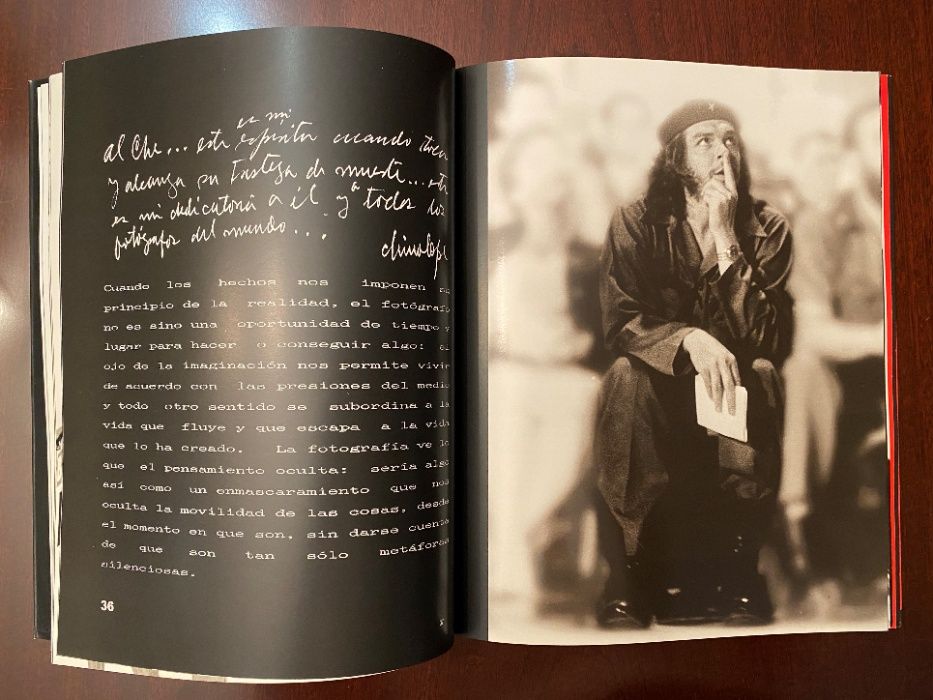 es mi
al Che... este espíritu cuando toca
y alcanza su tristeza de muerte... esta
es mi dedicatoria a él y a todos los
fotógrafos del mundo...
chinolope
Cuando los hechos nos imponen
principio de la realidad, el fotógrafo
no es sino una oportunidad de tiempo y
lugar para hacer o conseguir algo: el
ojo de la imaginación nos permite vivir
de acuerdo con las presiones del medio
y todo otro sentido se subordina a la
vida que fluye y que escapa a la vida
que lo ha creado. La fotografía ve lo
que el pensamiento oculta: sería algo
así como un enmascaramiento que nos
oculta la movilidad de las cosas, desde
el momento en que son, sin darse cuenta
de que son tan sólo metáforas
silenciosas.
36